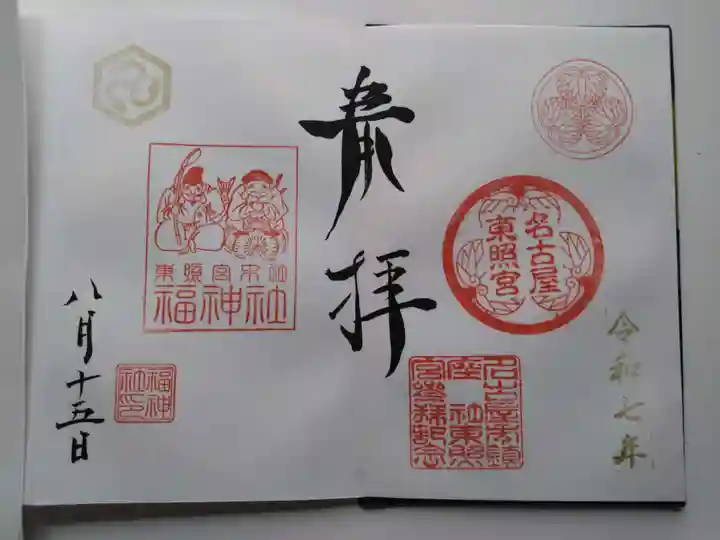 奉拝
名古屋
東照宮
名古屋市鎮
座 社東照
宮参拝記念
令和七年
東照宮末社
福神社
福神
社印
八月十五日